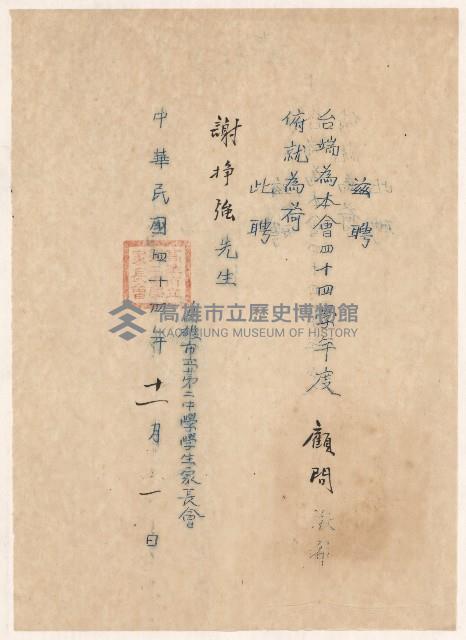 茲聘
台端為本會四十四學年度 顧問 敬希
俯就為荷
此聘
謝掙強先生
高雄市立第二中學學生家長會
中華民國四十四年十一月一日
高雄市立歷史博物館
KAOHSIUNG MUSEUM OF HISTORY